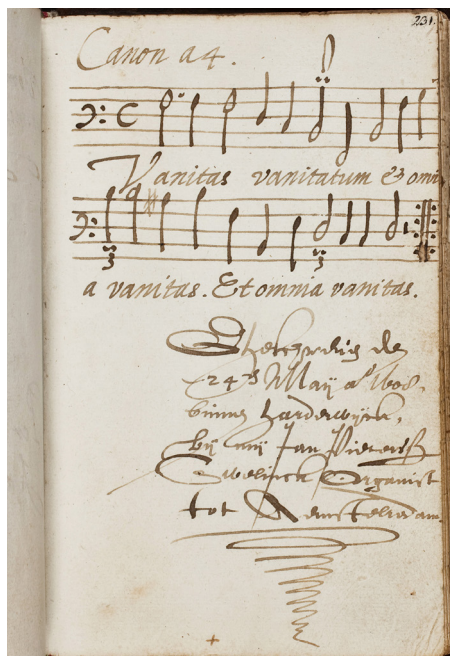 231.
Canon a 4.
Vanitas vanitatum Et omni
a vanitas. Et omnia vanitas.
den
24 Maij a° 1608.
binnen harderwijck,
bij mij Jan Pieterss
Swelijnck Organist
tot Aemstelredam.